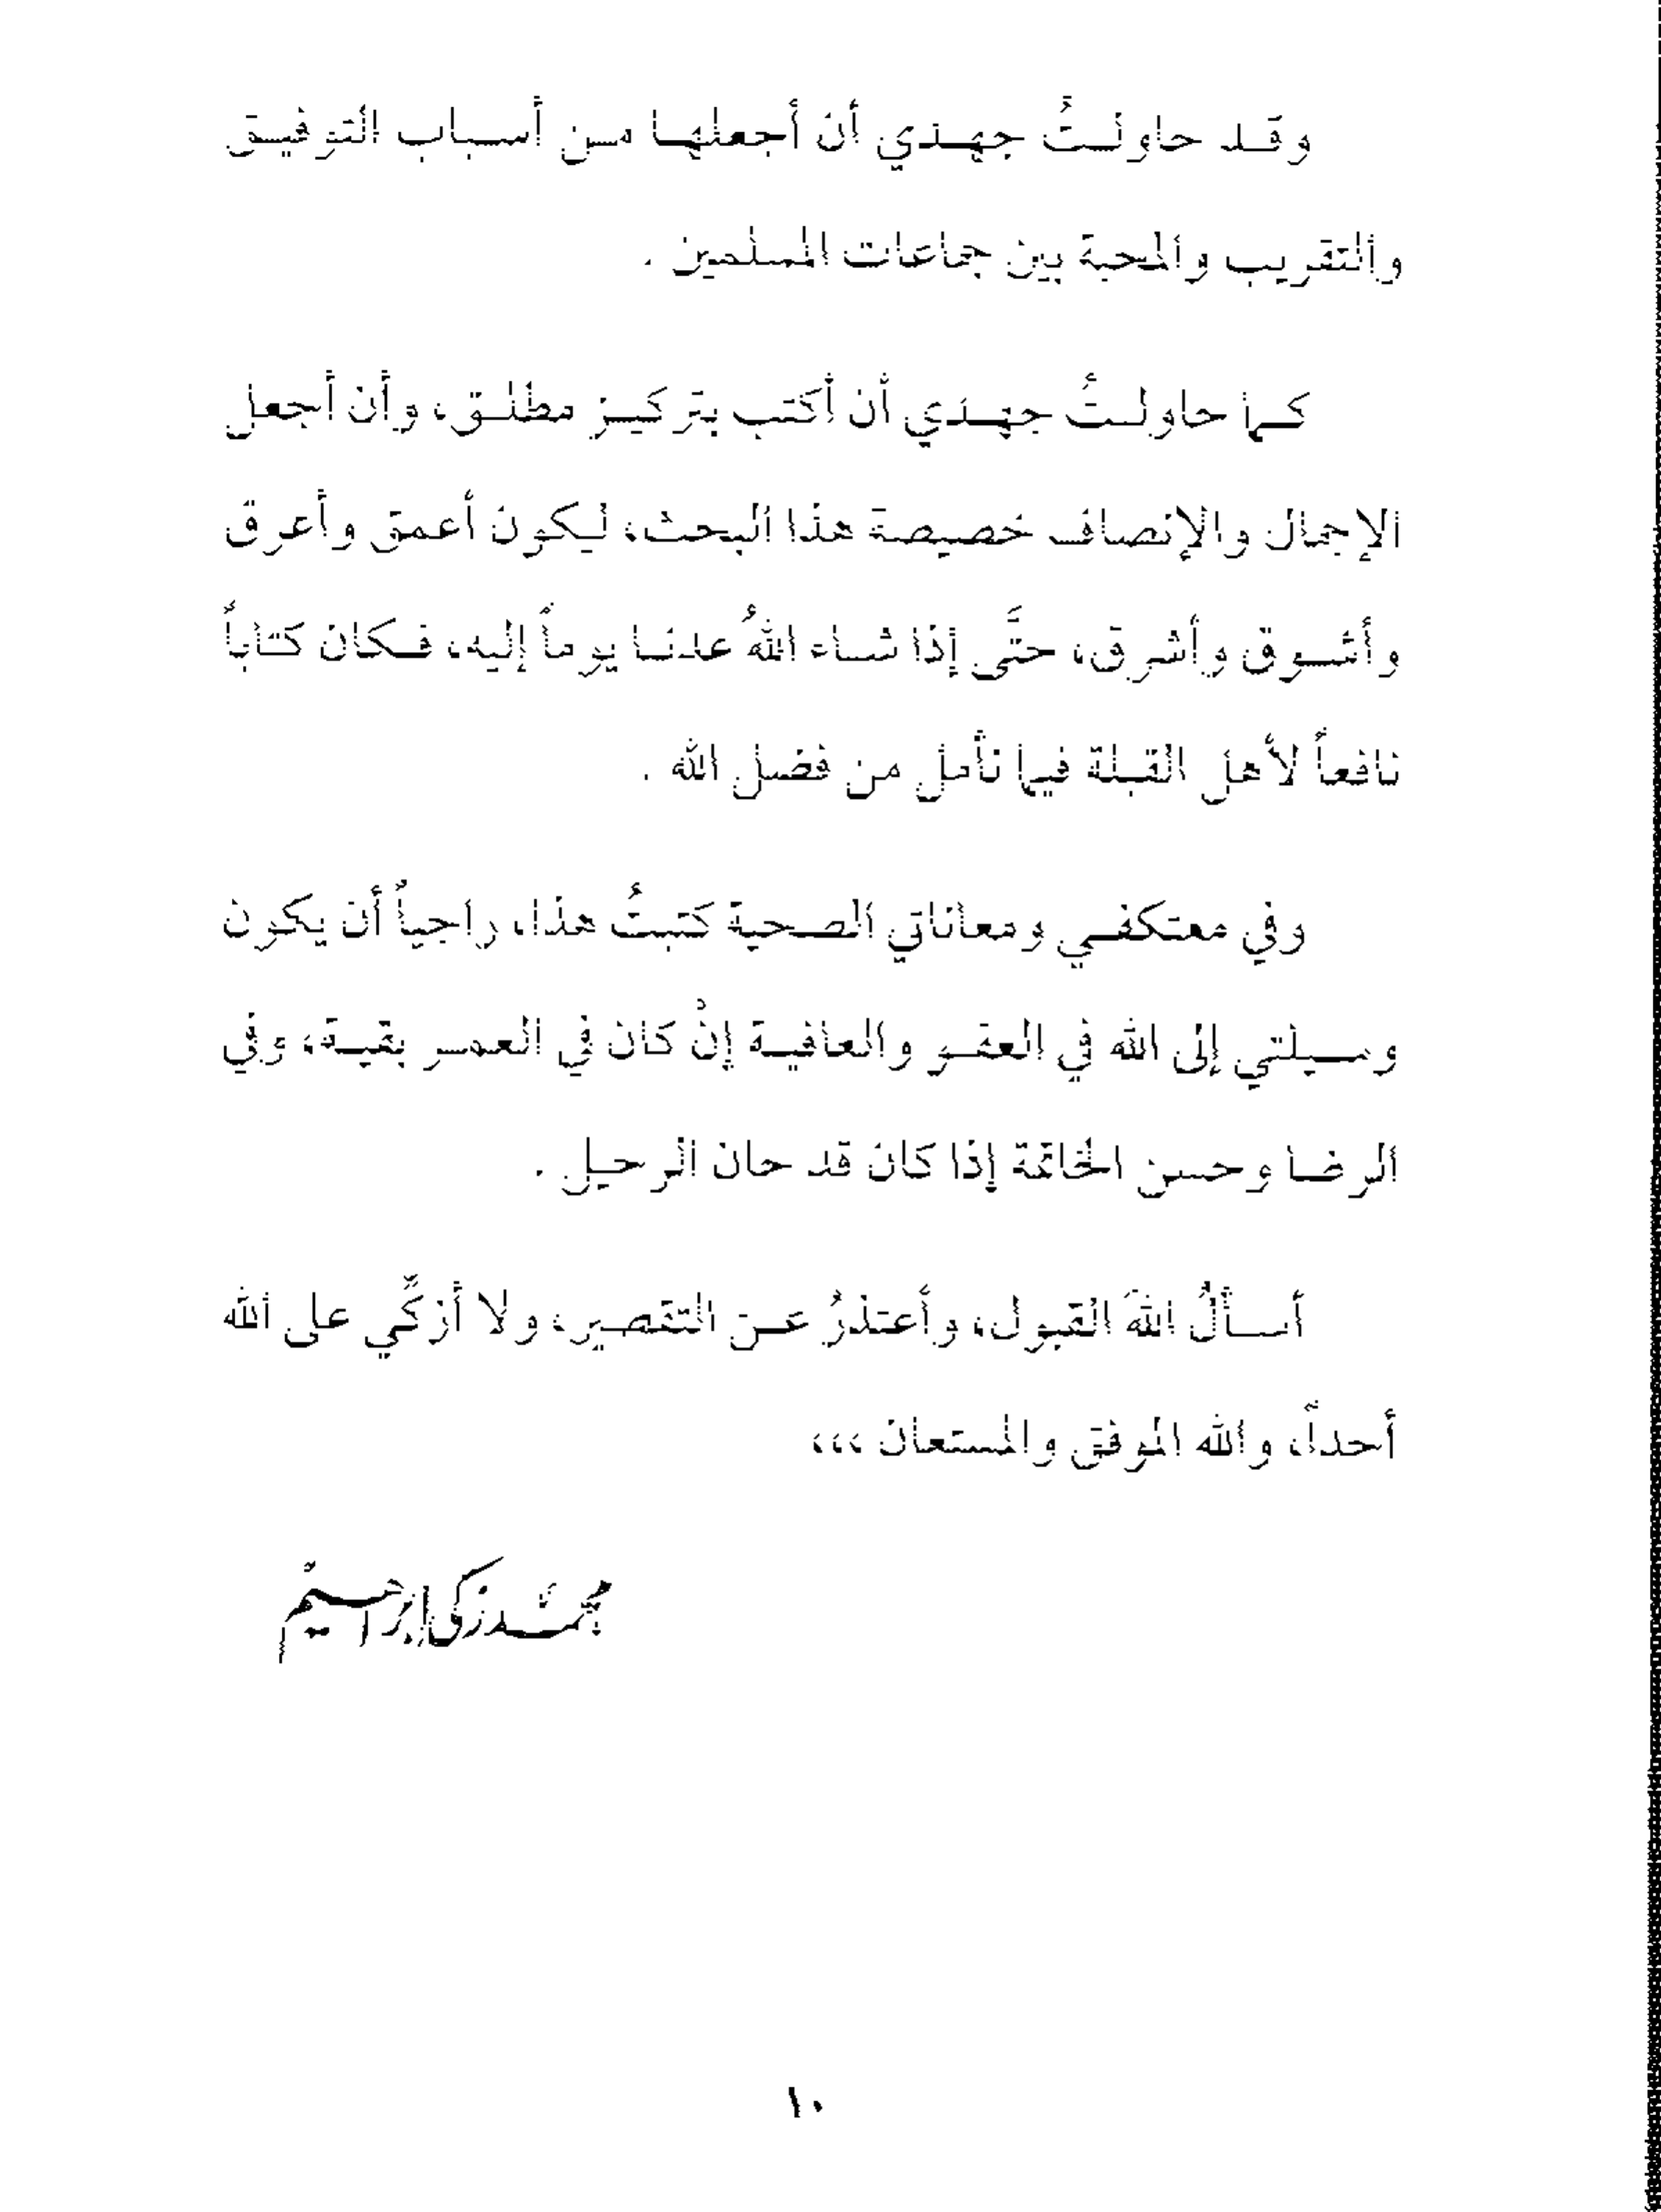 وقد حاولتُ جهدي أن أجعلها من أسباب التوفيق
والتقريب والمحبة بين جماعات المسلمين .
كما حاولتُ جهدي أن أكتب بتركيز مطلق، وأن أجعل
الإجمال والإنصاف خصيصة هذا البحث، ليكون أعمق وأعرق
وأشوق وأشرق، حتَّى إذا شاء اللهُ عدنا يوماً إليه، فكان كتاباً
نافعاً لأهل القبلة فيما نأمل من فضل الله .
وفي معتكفي ومعاناتي الصحية كتبتُ هذا، راجياً أن يكون
وسيلتي إلى الله في العفو والعافية إنْ كان في العمر بقية، وفي
الرضا وحسن الخاتمة إذا كان قد حان الرحيل .
أسألُ اللهَ القبول، وأعتذرُ عن التقصير، ولا أزكِّي على الله
أحداً، والله الموفق والمستعان ،،،
محمد زكى إبراهيم
١٠